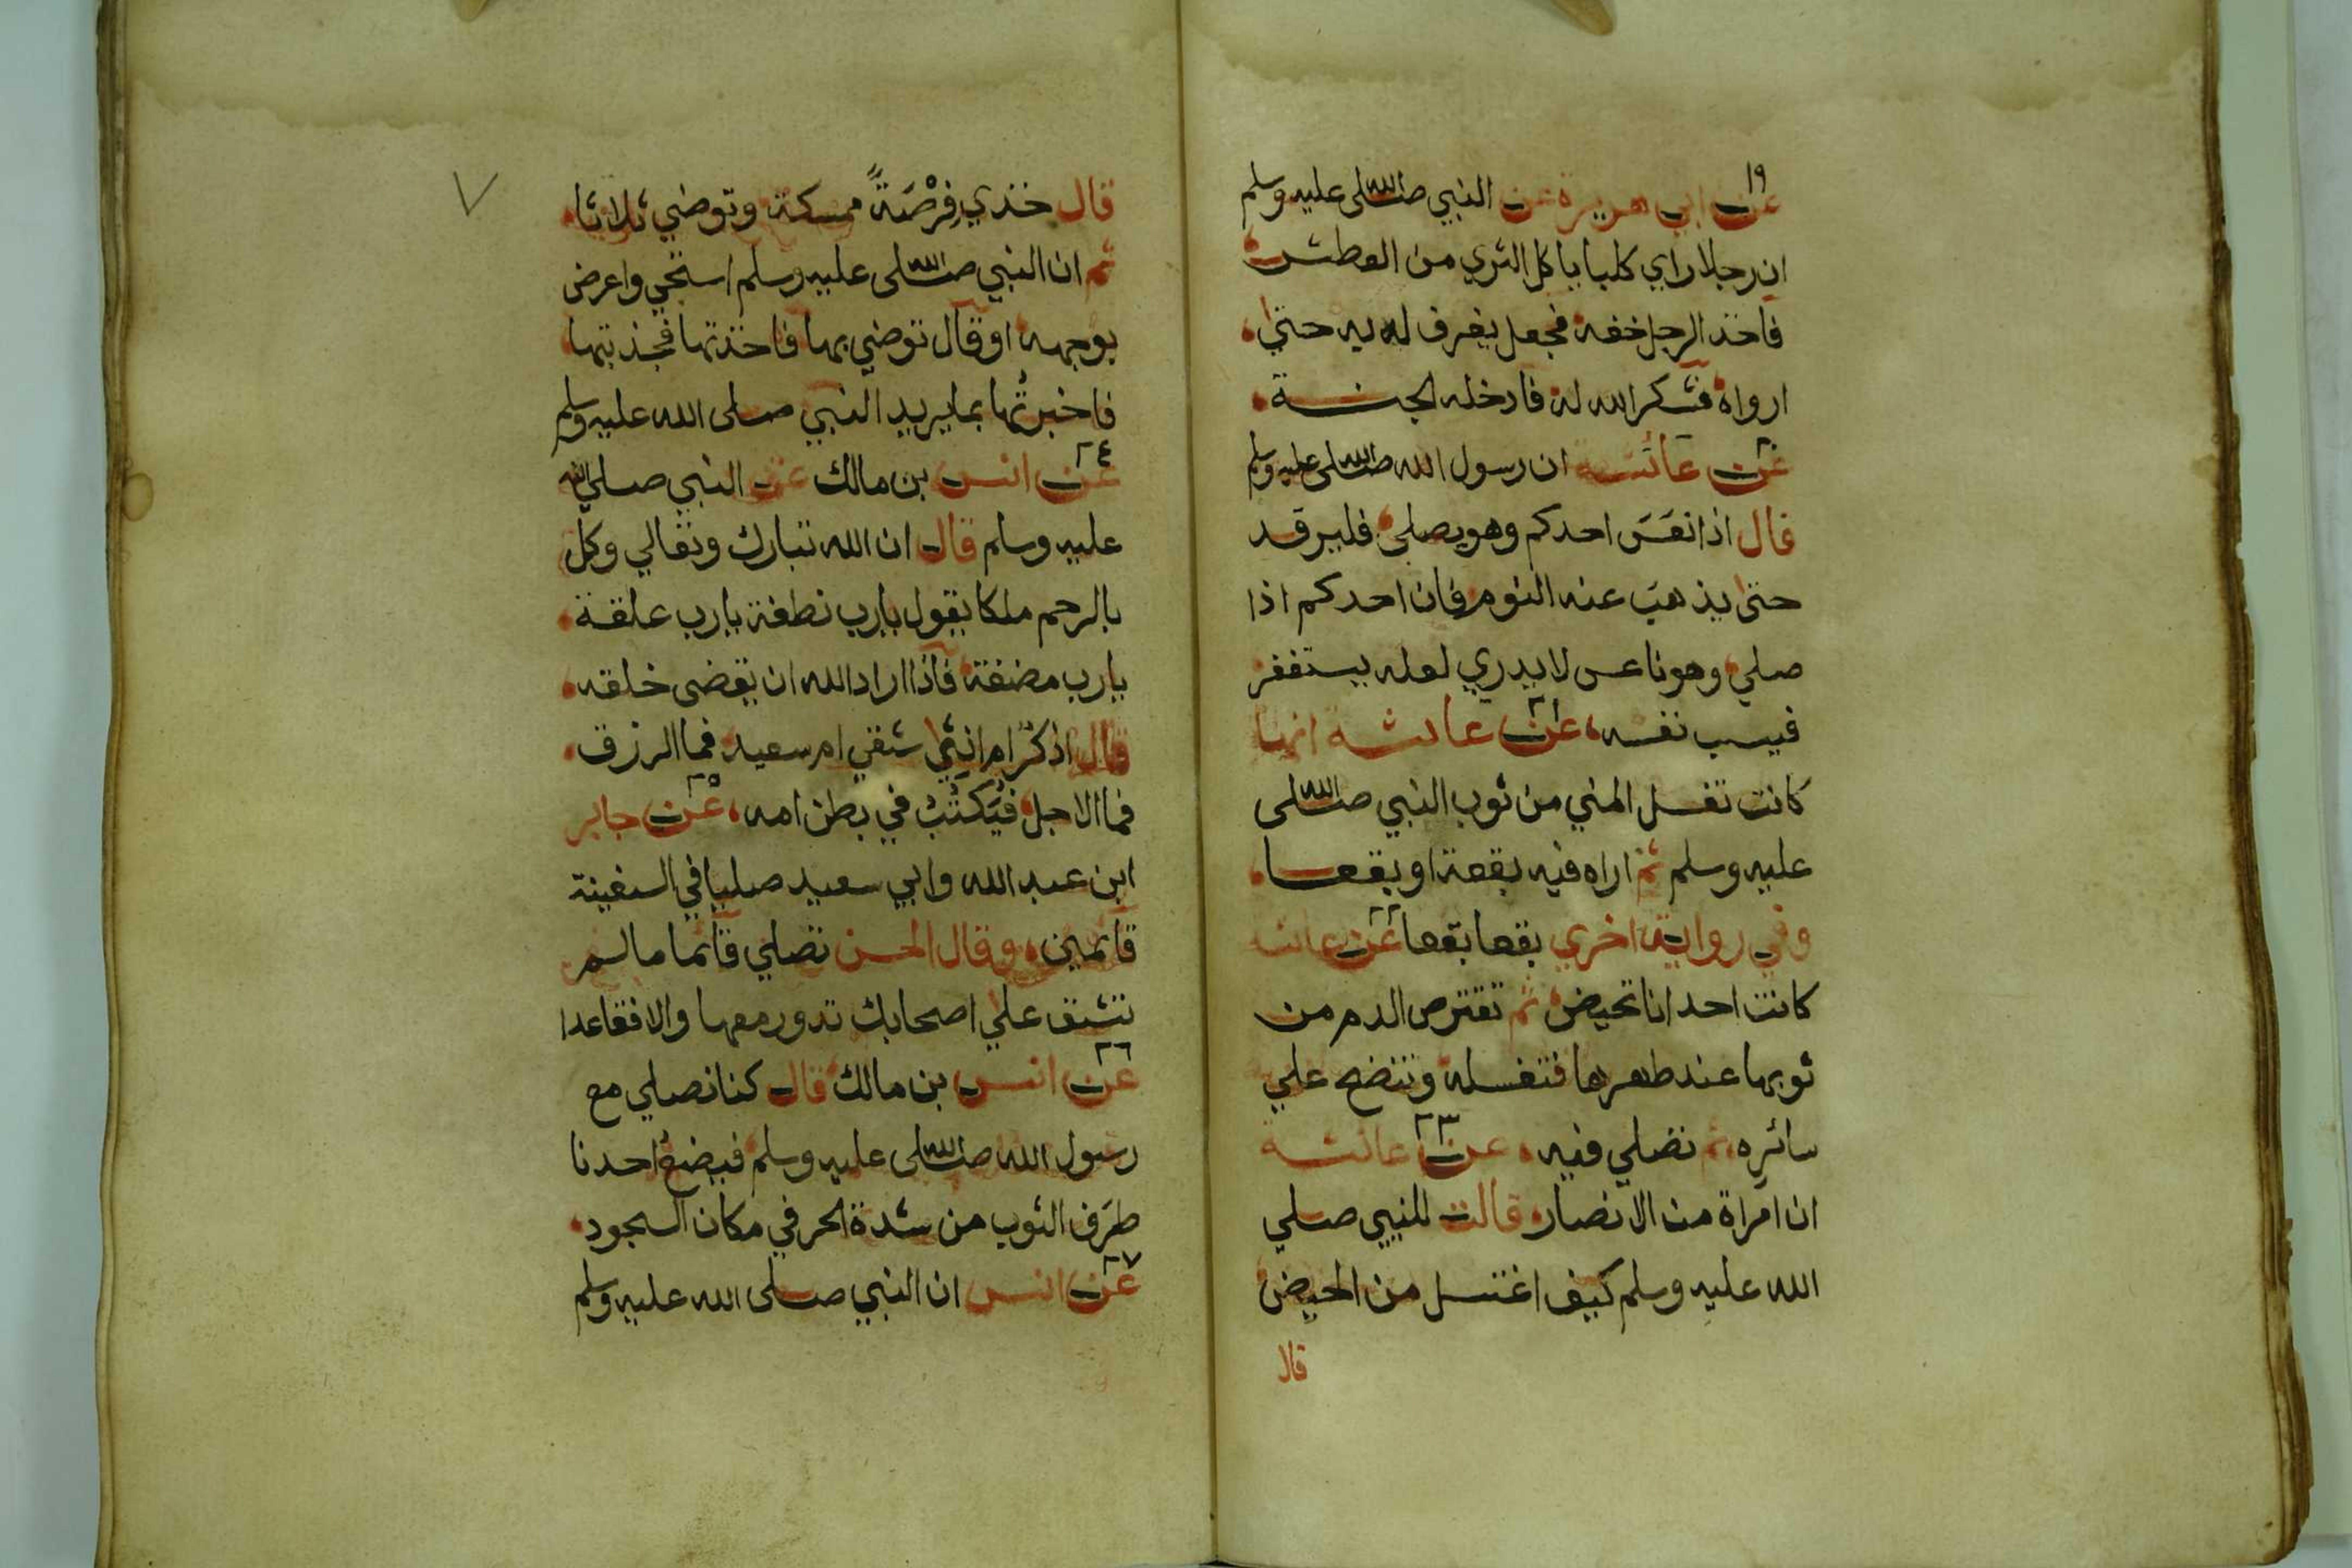 ١٩
عن ابي هريرة عن النبي صلى الله عليه وسلم
ان رجلا راي كلبا ياكل الثري من العطش
فاخذ الرجل خفه فجعل يغرف له به حتي
ارواه فشكر الله له فادخله الجنة
٢٠
عن عائشة ان رسول الله صلى الله عليه وسلم
قال اذا نعَسَ احدكم وهو يصلي فليرقد
حتى يذهبَ عنه النوم فان احدكم اذا
صلي وهو ناعس لا يدري لعله يستغفر
فيسب نفسه، ٢١ عن عائشة انها
كانت تغسل المني من ثوب النبي صلى الله
عليه وسلم ثم اراه فيه بقعة او بقعا
وفي رواية اخري بقعا بقعا ٢٢ عن عائشة
كانت احدانا تحيض ثم تقترص الدم من
ثوبها عند طهرها فتغسله وتنضح علي
سائره ثم تصلي فيه، ٢٣ عن عائشة
ان امراة من الانصار قالت للنبي صلي
الله عليه وسلم كيف اغتسل من الحيض
قال
٧
قال خذي فِرْصَةً ممسكة وتوضي ثلاثا
ثم ان النبي صلى الله عليه وسلم استحي واعرض
بوجهه او قال توضي بها فاخذتها فجذبتها
فاخبرتُها بما يريد النبي صلى الله عليه وسلم
٢٤
عن انس بن مالك عن النبي صلي الله
عليه وسلم قال ان الله تبارك وتعالي وكل
بالرحم ملكا يقول يا رب نطفة يا رب علقة
يا رب مضغة فاذا اراد الله ان يقضى خلقه
قال اذكرٌ ام انثي شقي ام سعيد فما الرزق
فما الاجل فيُكتَبُ في بطن امه، ٢٥ عن جابر
ابن عبد الله وابي سعيد صليا في السفينة
قائمين، وقال الحسن تصلي قائما ما لم
تشق علي اصحابك تدور معها والا فقاعدا
٢٦
عن انس بن مالك قال كنا نصلي مع
رسول الله صلى الله عليه وسلم فيضعُ احدنا
طرَف الثوب من شدة الحر في مكان السجود
٢٧
عن انس ان النبي صلى الله عليه وسلم